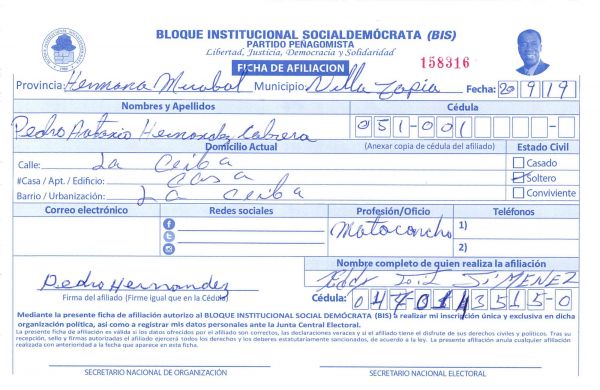 BLOQUE INSTITUCIONAL SOCIALDEMÓCRATA (BIS)
PARTIDO PEÑAGOMISTA
Libertad, Justicia, Democracia y Solidaridad
FICHA DE AFILIACION
158316
Provincia: Hermana Mirabal Municipio: Villa Tapia Fecha: 20 9 19
Nombres y Apellidos Cédula
Pedro Antonio Hernandez Cabrera 051-001
Domicilio Actual (Anexar copia de cédula del afiliado) Estado Civil
Calle: La Ceiba Casado
#Casa / Apt. / Edificio: Casa Soltero
Barrio / Urbanización: La Ceiba Conviviente
Correo electrónico Redes sociales Profesión/Oficio Teléfonos
Motoconcho 1)
2)
Nombre completo de quien realiza la afiliación
Pedro Hernandez JIMENEZ
Firma del afiliado (Firme igual que en la Cédula) Cédula:
Mediante la presente ficha de afiliación autorizo al BLOQUE INSTITUCIONAL SOCIAL DEMÓCRATA (BIS) a realizar mi inscripción única y exclusiva en dicha
organización política, así como a registrar mis datos personales ante la Junta Central Electoral.
La presente ficha de afiliación es válida si los datos ofrecidos por el afiliado son correctos, las declaraciones veraces y si el titular tiene el disfrute de sus derechos civiles y políticos. Tras su
recepción, sello y firmas autorizadas el afiliado ejercerá todos los derechos y los deberes estatutariamente sancionados, de acuerdo a la ley. La presente afiliación anula cualquier afiliación
realizada con anterioridad a la fecha que aparece en esta ficha.
SECRETARIO NACIONAL DE ORGANIZACIÓN SECRETARIO NACIONAL ELECTORAL